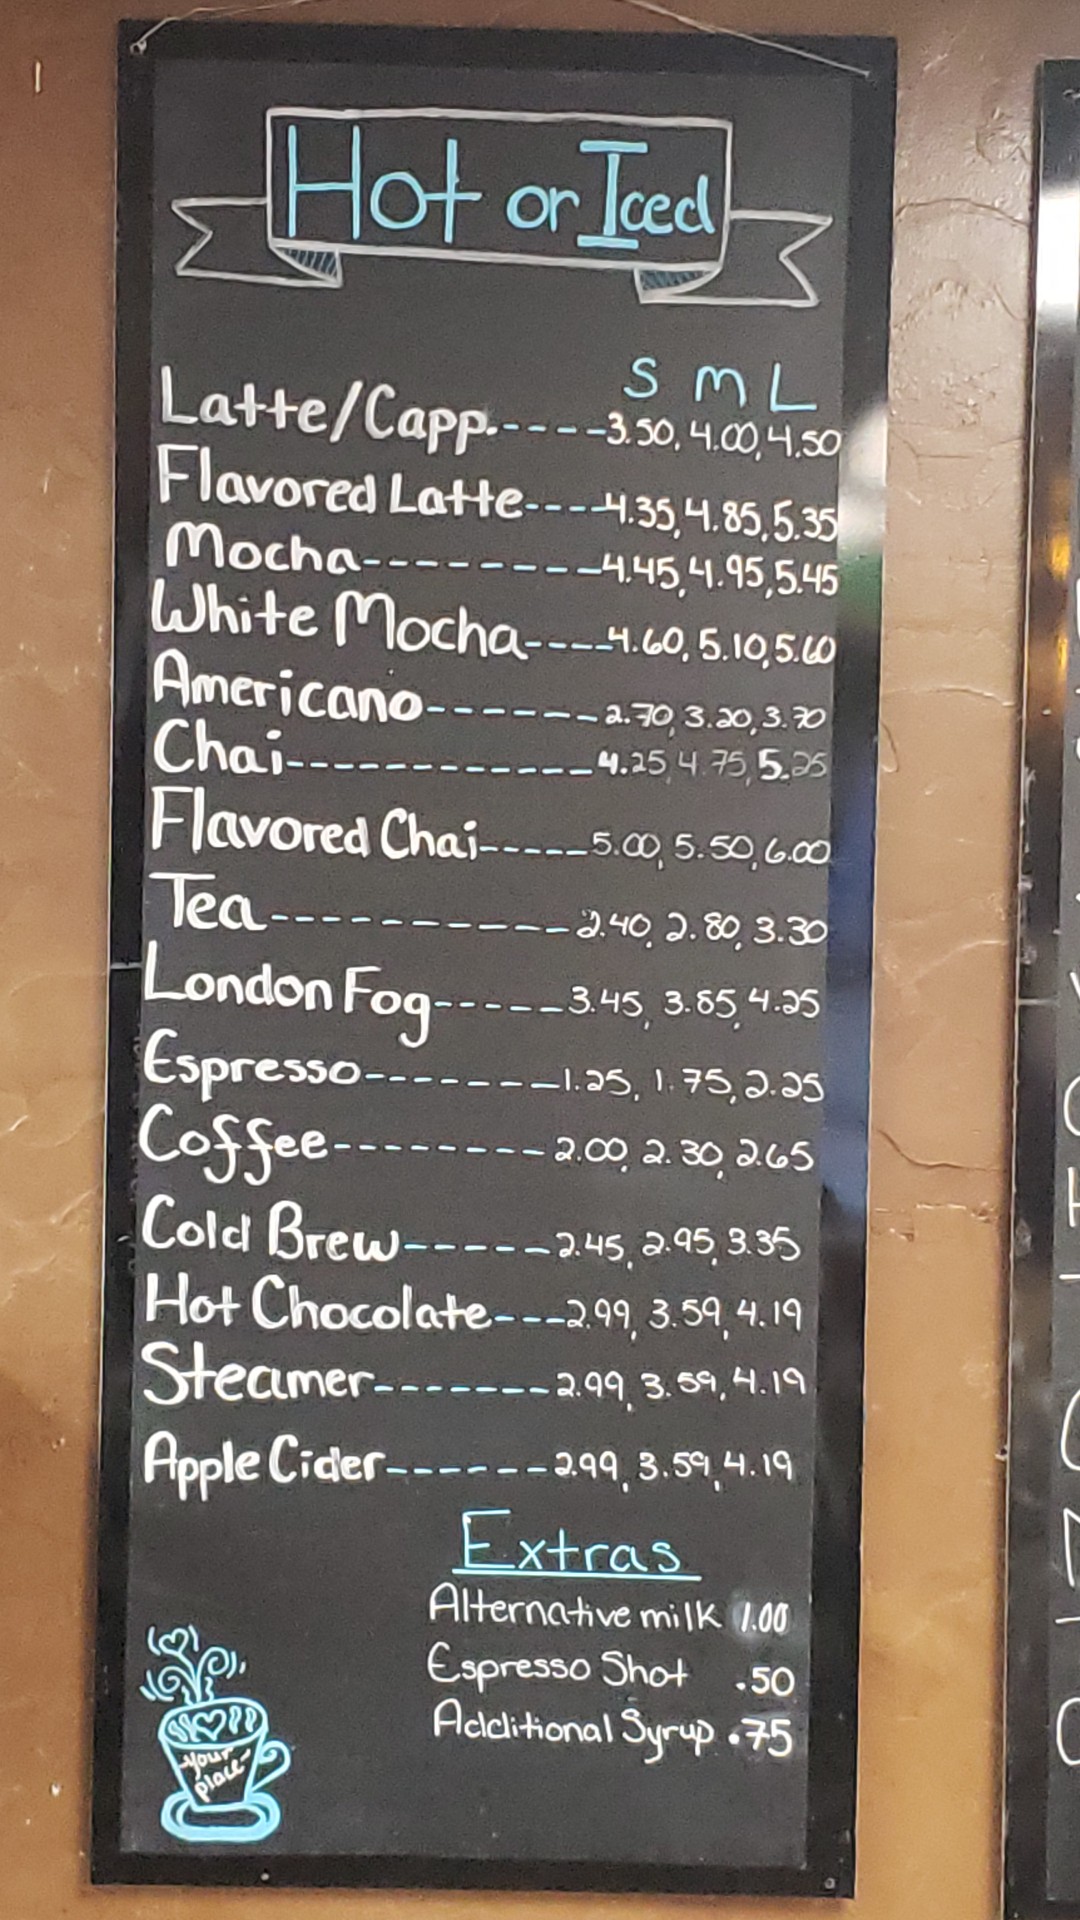 Hot or Iced
S M L
Latte/Capp.-----3.50, 4.00, 4.50
Flavored Latte----4.35, 4.85, 5.35
Mocha---------4.45, 4.95, 5.45
White Mocha----4.60, 5.10, 5.60
Americano-------2.70, 3.20, 3.70
Chai-------------4.25, 4.75, 5.25
Flavored Chai-----5.00, 5.50, 6.00
Tea-----------2.40, 2.80, 3.30
London Fog------3.45, 3.85, 4.25
Espresso--------1.25, 1.75, 2.25
Coffee---------2.00, 2.30, 2.65
Cold Brew------2.45, 2.95, 3.35
Hot Chocolate---2.99, 3.59, 4.19
Steamer--------2.99, 3.59, 4.19
Apple Cider-------2.99, 3.59, 4.19
Extras
Alternative milk 1.00
Espresso Shot .50
Additional Syrup .75
your
place